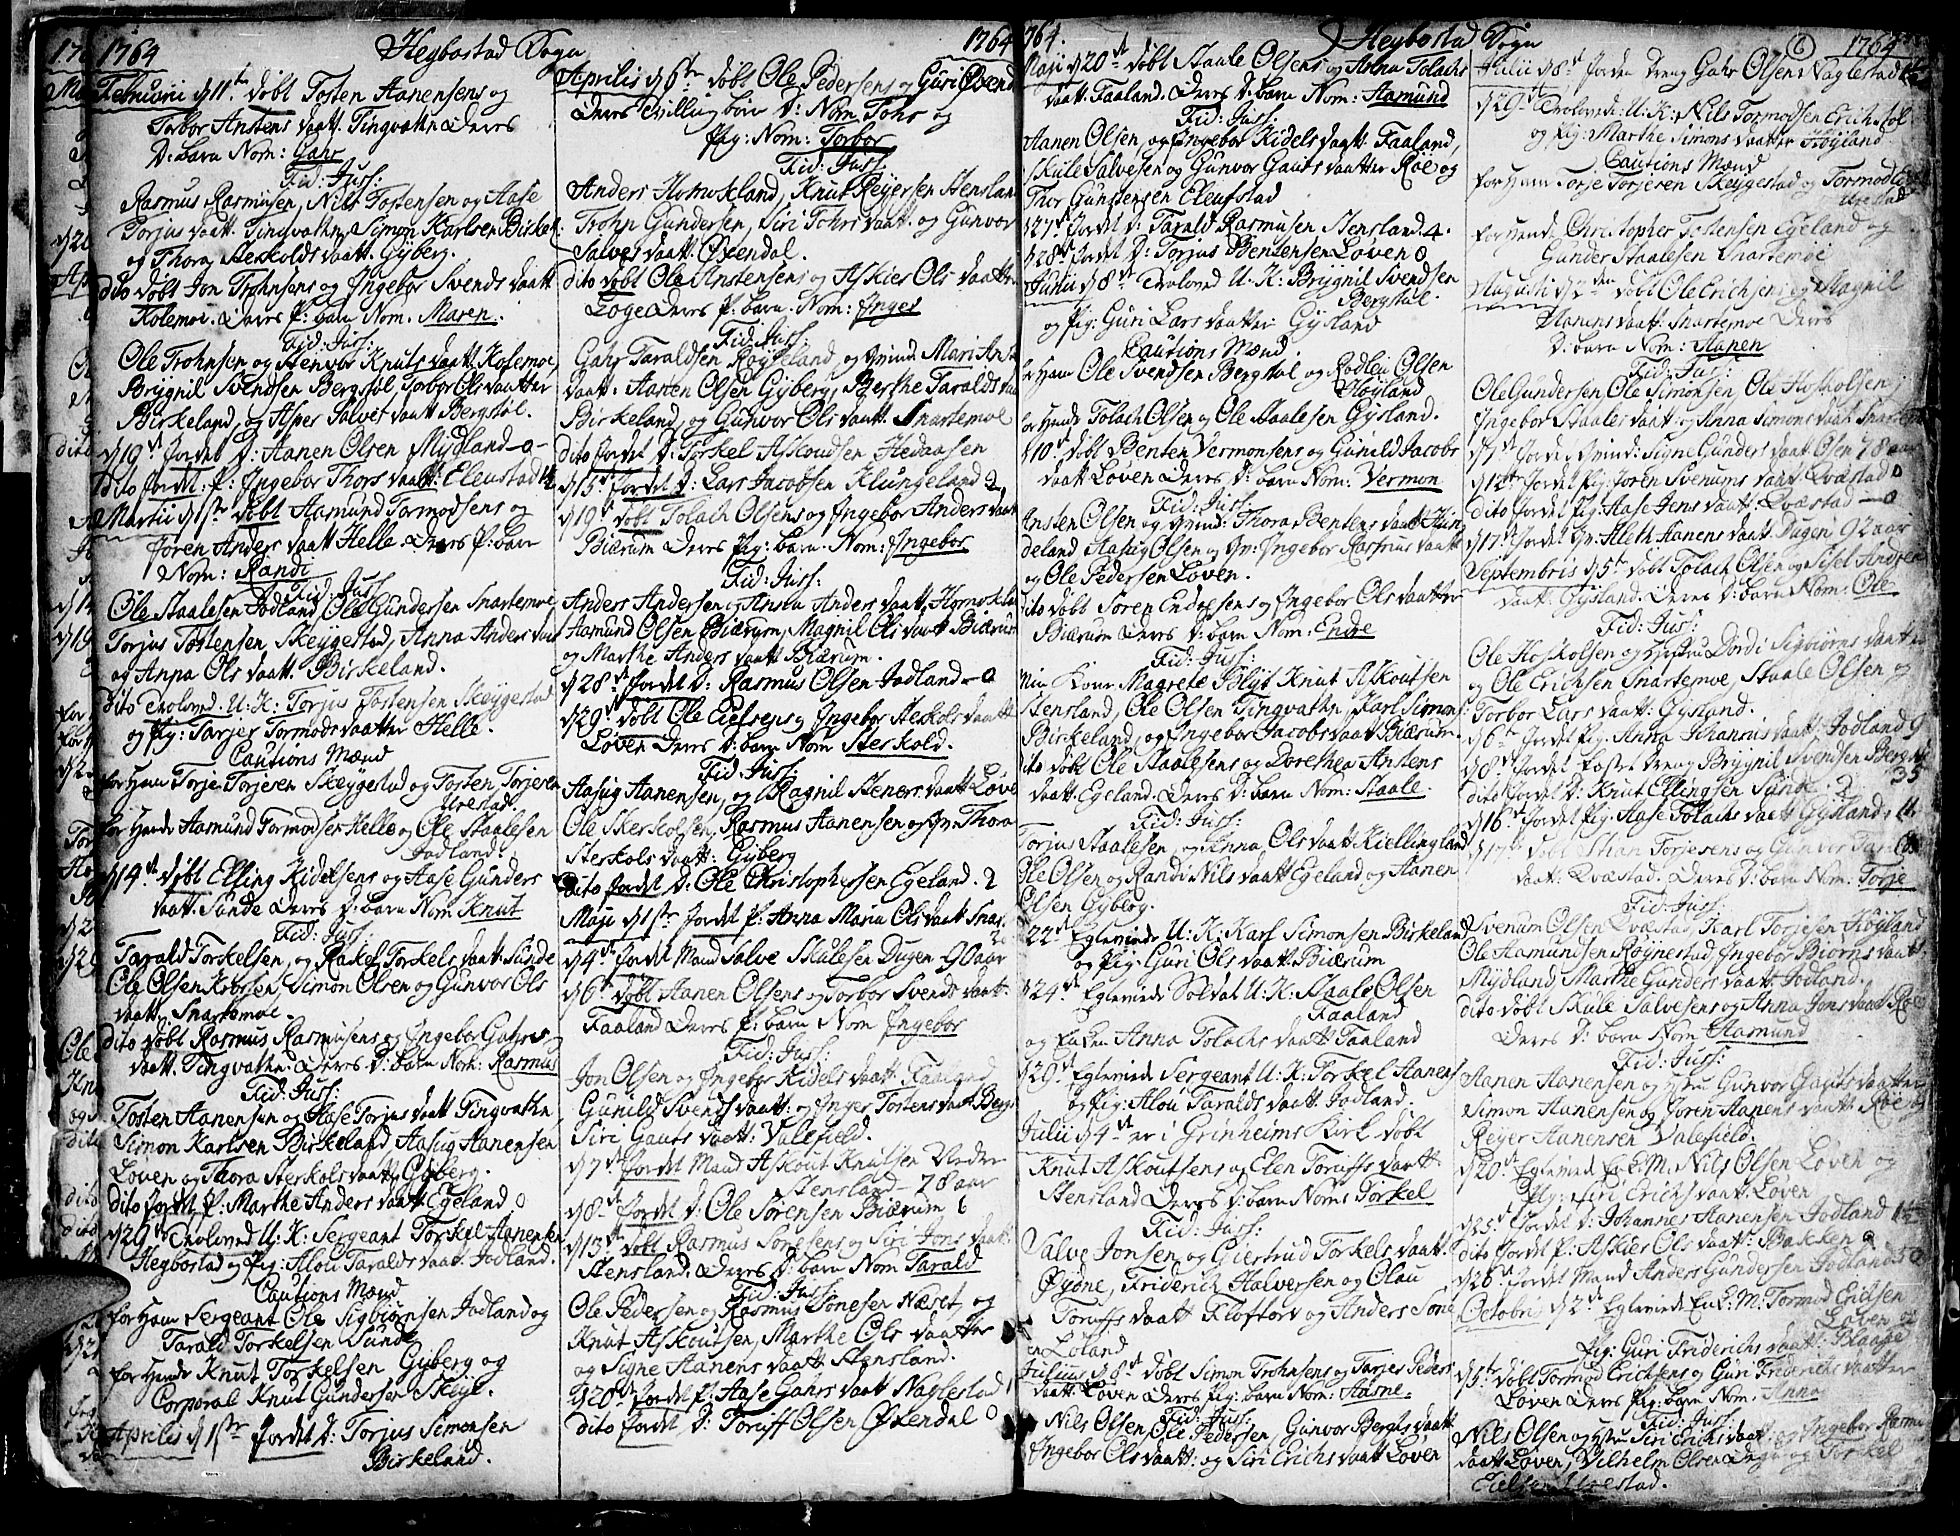 1764 Hegbostad Sogn 1764
Februarii d 11te døbt Tosten Aanensens og
Torbor Anstens daatt. Tingvatn Deres
D: barn Nom: Gahr
Fid: Juss:
Rasmus Rasmusen, Nils Tostensen og Aase
Torjus daatt. Tingvatn, Simon Karlsen Birkel.
og Thora Sterkolds daatt. Gyberg.
dito døbt Jon Trohnsens og Ingebor Svends daatt
Kolemoe. Deres P: barn Nom. Maren.
Fid: Juss:
Ole Trohnsen og Stenvor Knuts daatt. Kolemoe,
Brygnil Svendsen Bergstøl Torbor Ols daatter
Birkeland, og Asper Salves daatt Bergstøl.
d 19de Jordet D: Aanen Olsen Mydland - 0 -
dito Jordet P: Ingebor Thors daatt. Eleustad
Martii d 1ste døbt Aamund Tormodsens og
Joren Anders daatt Helle. Deres P: barn
Nom: Randi
Fid: Juss:
Ole Staalesen Jodland, Ole Gundersen Snartemoe,
Torjus Tostensen, Skeggestad, Anna Anders daat
og Anna Ols daatt. Birkeland.
dito Troloved U: K: Torjus Tostensen Skeggestad
og Pig: Tarjer Tormods daatter Helle.
Cautions Mænd
for Ham Torje Torjesen Skeggestad og Tosten Torjesen
Urestad.
for Hende Aamund Tormodsen Helle og Ole Staalesen
Jodland.
d 14de døbt Elling Kidelsens og Aase Gunders
daatt. Sunde Deres D: barn Nom: Knut
Fid: Juss:
Tarald Torkelsen, og Rakel Torkels daatt: Sunde
Ole Olsen Simon Olsen og Gunvor Ols
daatt. Snartemoe.
dito døbt Rasmus Rasmusens og Ingebor Gahrs
daatt. Tingvatn. Deres D: barn Nom: Rasmus
Fid: Juss:
Tosten Aanensen og Aase Torjus daatt Tingvatn
Simon Karlsen Birkeland Aasug Aanensen
Løven og Thora Sterkols daatt. Gyberg.
dito Jordet P: Marthe Anders daatt. Egeland 0
d 29de Troloved U: K: Sergeant Torkel Aanensen
Hegbostad og Pig: Alou Taralds daatt. Jodland.
Cautions Mænd
for Ham Sergeant Ole Sigbiørnsen Jodland og
Tarald Torkelsen Sunde
for Hende Knut Torkelsen Gyberg og
Corporal Knut Gundersen Skeie.
Aprilis d 1ste Jordet D: Torjus Simonsen
Birkeland.
Aprilis d 6te døbt Ole Pedersens og Guri Øxend
Deres Tvilling børn D: Nom. Tohr og
Pig: Nom: Torbor
Fid: Juss:
Anders Homokland, Knut Reyersen Stensland
Trohn Gundersen, Siri Tohrs daatt. og Gunvor
Salves daatt. Øxendal.
dito døbt Ole Anstensens og Askier Ols daatter
Løge Deres P: barn. Nom: Inger
Fid: Juss:
Gahr Taraldsen Røyseland, og Qvind. Mari Anst
daatt. Aanen Olsen Gyberg, Berthe Taralds daa
Birkeland, og Gunvor Ols daatt. Snartemoe
dito Jordet D: Torkel Askoudsen Hedaasen
d 15de Jordet D: Lars Jacobsen Klungeland 2
d 19de døbt Tolach Olsens og Ingebor Anders daat
Biærum Deres Pig: barn. Nom: Ingebor
Fid: Juss:
Anders Andersen og Anna Anders daatt. Homokla
Aamund Olsen Biærum, Magnil Ols daatt Biærum
og Marthe Anders daatt. Biærum.
d 28de Jordet D: Rasmus Olsen Jodland - 0
d 29de døbt Ole Eielsens og Ingebor Sterkols daatt
Løven Deres D: barn Nom Sterkold.
Fid: Juss:
Aasug Aanensen, og Ragnil Steners daatt Løve
Ole Skerkolsen, Rasmus Aanensen og Qv: Thora
Sterkols daatt: Gyberg
Dito Jordet D: Ole Christophersen Egeland. 2
Maji d 1ste Jordet P: Anna Maria Ols daatt. Snar
d 4de Jordet Mand Salve Skulesen Dugen 90 aar
d 6te døbt Aanen Olsens og Torbor Svends daatt.
Faaland Deres P: barn Nom Ingebor
Fid: Juss:
Jon Olsen og Ingebor Kidels daatt. Faaland
Gunild Svends daatt: og Inger Tostens daatt Bergs
Siri Gauts daatt: Valefield.
d 7de Jordet Mand Askout Knutsen Neder
Stensland - 78 aar
d 8de Jordet D: Ole Sørensen Biærum 6
d 13de døbt Rasmus Tonesens og Siri Jons daatt:
Stensland. Deres D: barn Nom Tarald
Fid: Juss:
Ole Pedersen og Rasmus Tonesen Næset, og
Knut Askoutsen, Marthe Ols daatter
og Signe Aanens daatt Stensland.
d 20de Jordet P: Aase Gahrs daatt Naglestad 1
dito Jordet D: Toruff Olsen Øxendal 0
1764. Hegbostad Sogn 6 1764
Maji d 20de døbt Staale Olsens og Anna Tolachs
daatt. Faaland. Deres D: barn Nom: Aamund
Fid: Juss:
Aanen Olsen, og Ingebor Kidels daatt. Faaland,
Skule Salvesen og Gunvor Gauts daatter Røe og
Thor Gunstensen Eleustad
d 27de Jordet D: Tarald Rasmusen Stensland. 4.
d 28de Jordet D: Torjus Bentensen Løven 0
Junii d 8de Trolovod U: K: Brygnil Svendsen
Bergstøl.
og Pig: Guri Lars daatter Gysland
Cautions Mænd
for Ham Ole Svendsen Bergstøl og Rodleu Olsen
Høyland
for Hende Tolach Olsen og Ole Staalesen Gysland.
d 10de døbt Benten Vermonsens og Gunild Jacobs
daatt Løven Deres D: barn Nom: Vermon
Fid: Juss:
Ansten Olsen og Qvind: Thora Bentens daatt Hun
deland Aasug Olsen og Qv: Ingebor Rasmus daatt
og Ole Pedersen Løven.
dito døbt Søren Endresens og Ingebor Ols daatter
Biærum Deres D: barn Nom: Endre
Fid: Juss:
Min Kone Magrete Blyt Knut Askoutsen
Stensland, Ole Olsen Tingvatn, Karl Simons
Birkeland, og Ingebor Jacobs daatt Biærum.
dito døbt Ole Staalesens og Dorethea Anstens
daatt. Egeland. Deres D: barn Nom: Staale.
Fid: Juss:
Torjus Staalesen, og Anna Ols daatt Kiellingland
Ole Olsen og Randi Nils daatt Egeland og Aanen
Olsen Gyberg.
22de Egteviede U: K: Karl Simonsen Birkeland
og Pig: Guri Ols daatt Biærum
d 24de Egteviede Soldat U: K: Staale Olsen
Faaland
og Enken Anna Tolachs daatt Faaland
d 29de Egteviede Sergeant U: K: Torkel Aanens
og Pig: Alou Taralds daatt. Jodland.
Julii d 4de er i Grinheims Kirk døbt
Knut Askoutsens og Elen Toruffs daatt.
Stensland Deres D: barn Nom: Torkel
Fid: Juss:
Salve Jonsen og Giertrud Torkels daatt.
Øydne, Friderich Halversen og Olau
Toruffs daatt Kloftord og Anders Tone
sen Løland
Julius d 8de døbt Simon Trohnsens og Tarjer Peders
daatt: Løven Deres Pig: barn Nom: Aasne.
Fid: Juss:
Nils Olsen, Ole Pedersen, Gunvor Bergus daatt
Ingebor Ols daatt: og Siri Erichs daatt Løven
Julii d 8de Jorden Dreng Gahr Olsens Naglestad
d 29de Trolovede U: K: Nils Tormodsen Erichstøl
og Pig: Marthe Simons daatter Høyland
Cautions Mænd
for Ham Torje Torjesen Skeggestad og Tormod
Urestad
for Hende Christopher Tostensen Egeland og
Gunder Staalesen Snartemoe
Augusti d 2den døbt Ole Erichsens og Magnil
Aanens daatt. Snartemoe Deres
D: barn Nom: Aanen
Fid: Juss:
Ole Gundersen Ole Simonsen, Ole Høskolsen
Ingebor Staales daatt: og Anna Simons daatt Snartemoe
d 7de Jordet Qvind: Signe Gunders daatt Olsen 78 aar
d 12te Jordet Pig: Joren Svenums daatt. Qvæstad 0
dito Jordet Pig: Aase Jens daatt: Qvæstad - 0
d 17de Jordet Qv: Aleth Aanens daatt. Dugen 92 aar
Septembris d 5te døbt Tolach Olsens og Sisel Andrea
daatt: Gysland. Deres D: barn Nom: Ole
Fid: Juss:
Ole Høskolsen og Hustru Dordi Sigbiørns daatter
og Ole Erichsen Snartemoe, Staale Olsen og
Torbor Lars daatt: Gysland.
d 6te Jordet Pig: Anna Johannis daatt: Jodland 9
d 8de Jordet Dreng Brygnil Svendsen Bergstøl
35
dito Jordet D: Knut Ellingsen Sunde 2
d 16de Jordet Pig: Aase Tolachs daatt Gysland. 11.
d 17de døbt Torjesens og Gunver Tarald
daatt: Qvæstad. Deres D: barn Nom: Torje
Fid: Juss:
Svenum Olsen Qvæstad, Karl Torjesen Høyland
Ole Aamundsen Røynestad Ingebor Biørns daatt:
Mydland, Marthe Gunders daatt: Jodland.
dito døbt Skule Salvesens og Anna Jons daatt Røe
Deres D: barn Nom: Aamund
Fid: Juss:
Aanen Aanensen og Hustru Gunvor Gauts daatter
Simon Aanensen og Joren Aanens daatt. Røe og
Reyer Aanensen Valefield.
d 20de Egteviede Enk. M: Nils Olsen Løven og
Pig: Siri Erichs daatt: Løven
d 25de Jordet D: Johannes Aanensen Jodland
dito Jordet P: Askier Ols daatt: Bakken 0
d 26de Jordet Mand Anders Gundersen Jodland 50
Octobris d 2de Egteviede Enk: M: Tormod Erichsen
Løven og
Pig: Guri Friderichs daatt: Blaage
d 5te døbt Tormod Erichsens og Guri Friderichs daatter
Løven Deres Pig: barn Nom. Anna
Fid: Juss:
Nils Olsen og Hustru Siri Erichs daatt: og Ingebor Rasmus
daatt Løven, Vilhelm Olsen Dugen og Torkel
Eielsen Urestad.